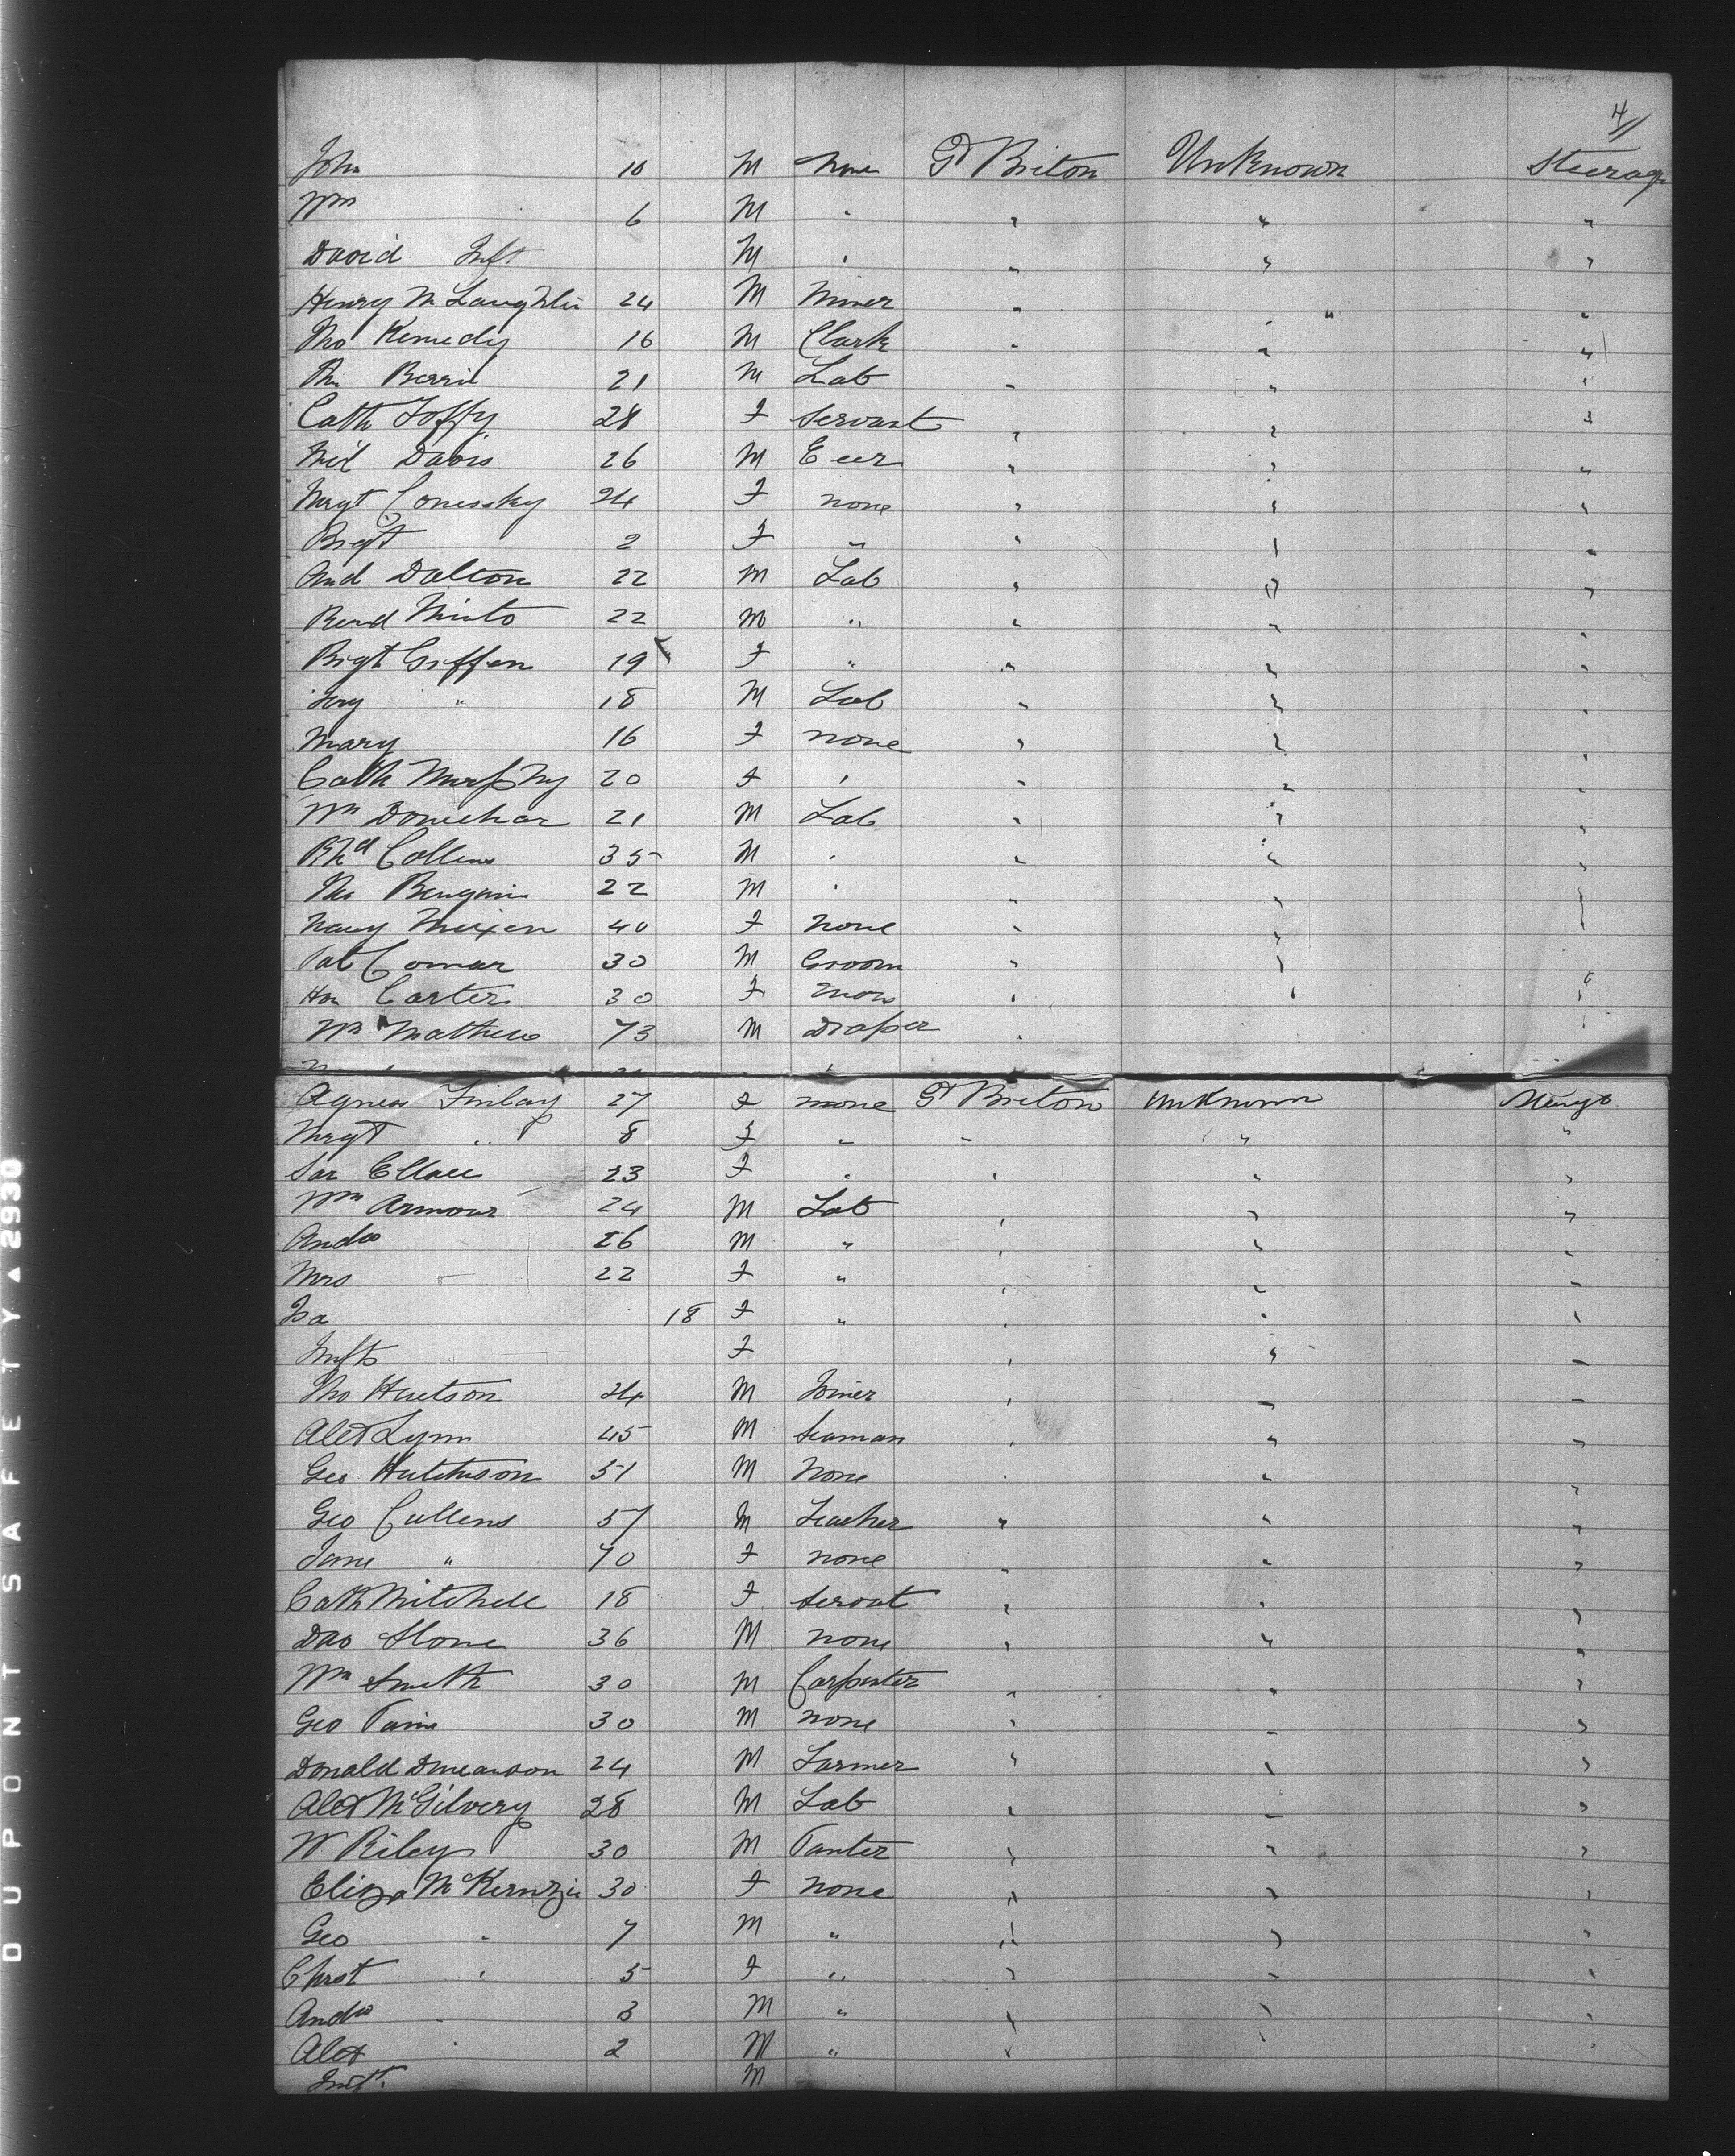 4
John 10 M None Gt Briton Unknown Steerage
Wm 6 M " " " "
David Inft M " " " "
Henry McLaughlin 24 M Miner " " "
Tho Kennedy 16 M Clark " " "
21 M Lab " " "
Cath 28 F Servant " " "
Davis 26 M " " "
Mrgt 24 F none " " "
Brigt 2 F " " " "
And Dalton 22 M Lab " " "
Minto 22 M " " " "
Bigt Griffen 19 F " " " "
" 18 M Lab " " "
Mary 16 F none " " "
Cath Murphy 20 F " " " "
Wm 21 M Lab " " "
Rhd Collins 35 M " " " "
Tho 22 M " " "
40 F None " "
Pat 30 M Groom " "
Hon Carter 30 F " " "
Wm Mathew 73 M Draper "
Agnes Finlay 27 F none Gt Briton Unknown
Mrgt " 8 F " " " "
Sar 23 F " " " "
Wm Armour 24 M Lab " " "
Andw 26 M " " " "
Mrs 22 F " " " "
Isa 18 F " " " "
Infts F " " "
Tho Huetson 24 M Joiner " " "
Alex Lynn 45 M Seaman " " "
Geo Hutchison 51 M None " " "
Geo Cullens 57 M Teacher " " "
Jane " 70 F none " " "
Cath Mitchell 18 F Servat " " "
Dav Stone 36 M none " " "
Wm Smith 30 M Carpenter " " "
Geo 30 M none " " "
Donald Duncanson 24 M Farmer " " "
Alex McGilvery 28 M Lab " " "
W Riley 30 M " " "
Eliza McKenzie 30 F none " " "
Geo " 7 M " " " "
Christ " 5 F " " " "
Andw " 3 M " " " "
Alex " 2 M " " " "
Inft M
DUPONT SAFETY ▲ 2930